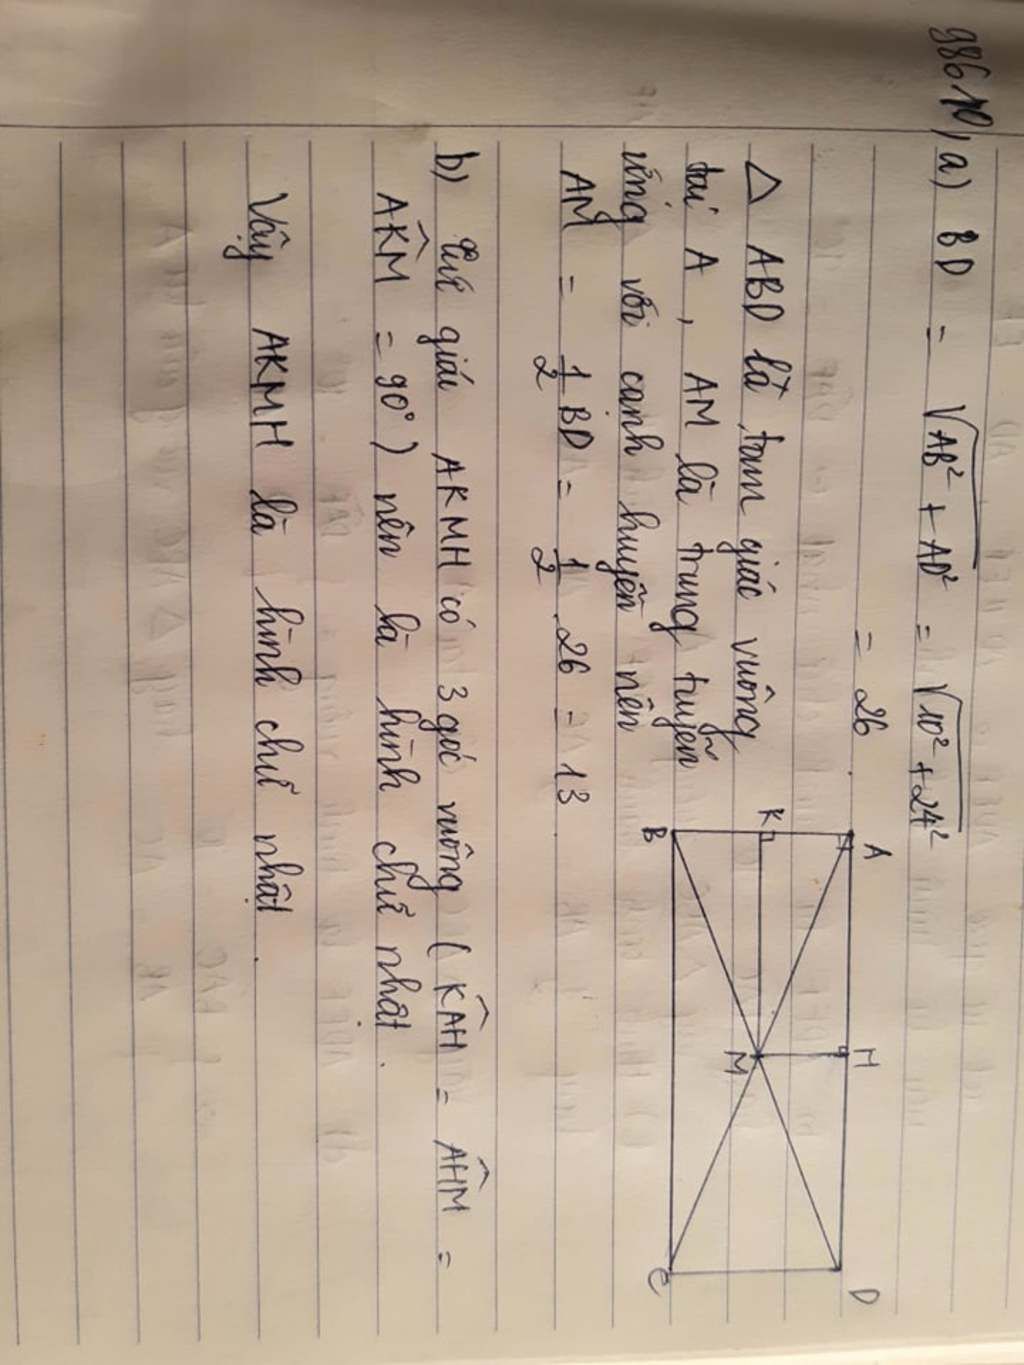 98610, a) BD = √AB² + AD² = √10² + 24²
= 26.
△ ABD là tam giác vuông
tại A, AM là trung tuyến
ứng với cạnh huyền nên
AM = 1/2 BD = 1/2 . 26 = 13
b) Tứ giác AKMH có 3 góc vuông ( K̂AH = ÂHM =
AK̂M = 90° ) nên là hình chữ nhật.
Vậy AKMH là hình chữ nhật.
A
H
D
K
M
B
C